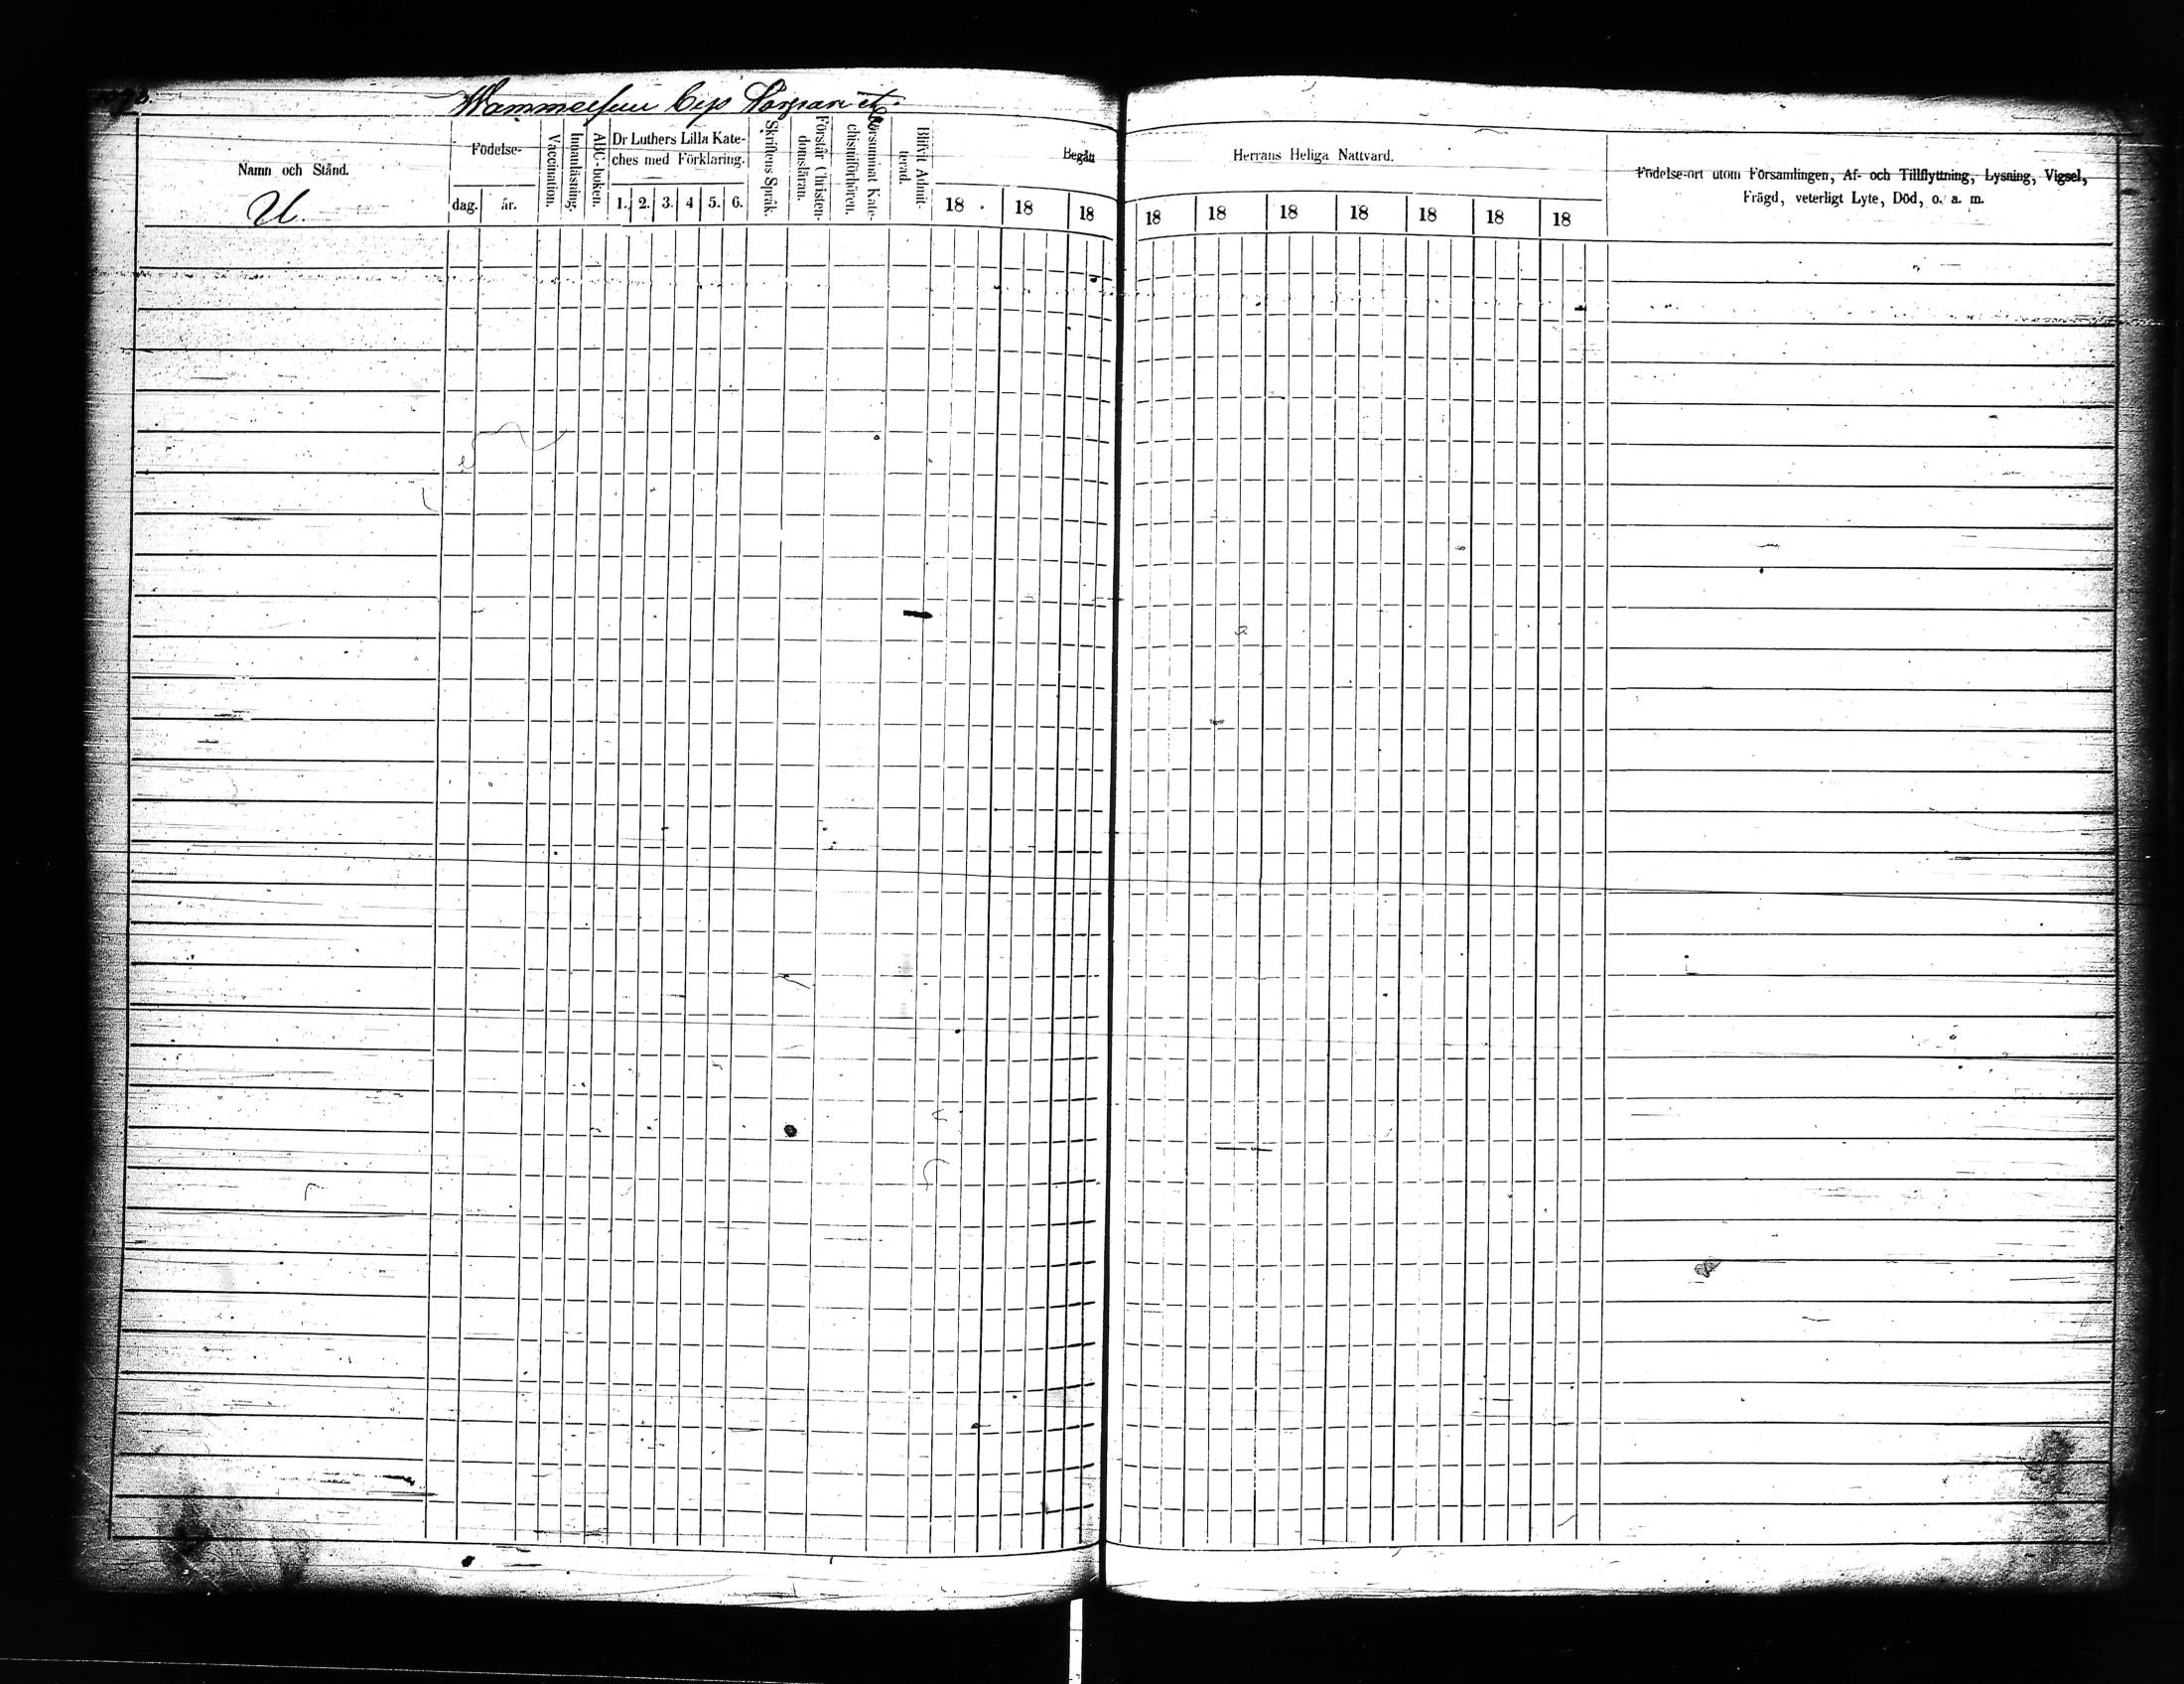 Namn och Stånd.
U.
Födelse-
dag. år.
Vaccination.
Innanläsning.
ABC-boken.
Dr Luthers Lilla Kate-
ches med Förklaring.
1. 2. 3. 4 5. 6.
Skriftens Språk.
Förstår Christen-
domsläran.
Försummat Kate-
chismiförhören.
Blifvit Admit-
terad.
Begått
18 18 18
Herrans Heliga Nattvard.
18 18 18 18 18 18 18
Födelse-ort utom Församlingen, Af- och Tillflyttning, Lysning, Vigsel,
Frägd, veterligt Lyte, Död, o. a. m.